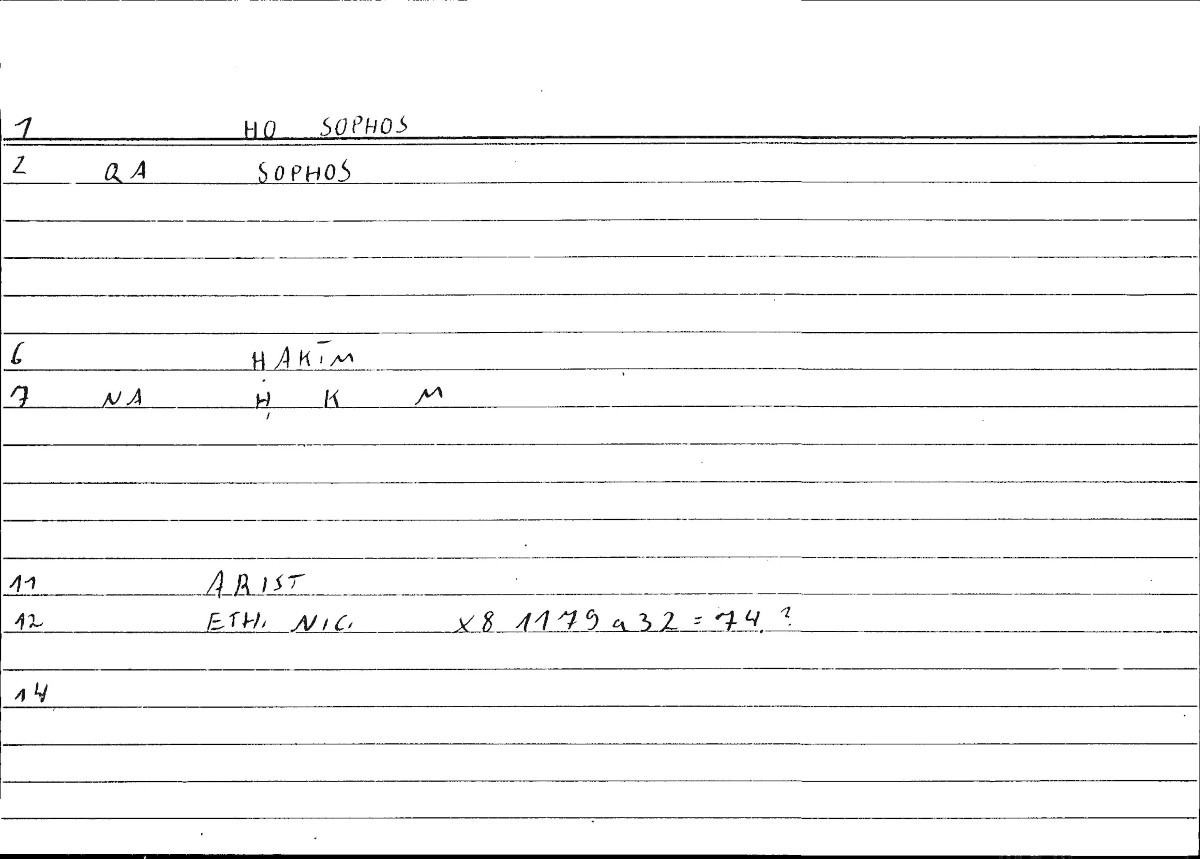 1 HO SOPHOS
2 QA SOPHOS
6 ḤAKĪM
7 NA Ḥ K M
11 ARIST
12 ETH. NIC. X8 1179a32 = 74.?
14